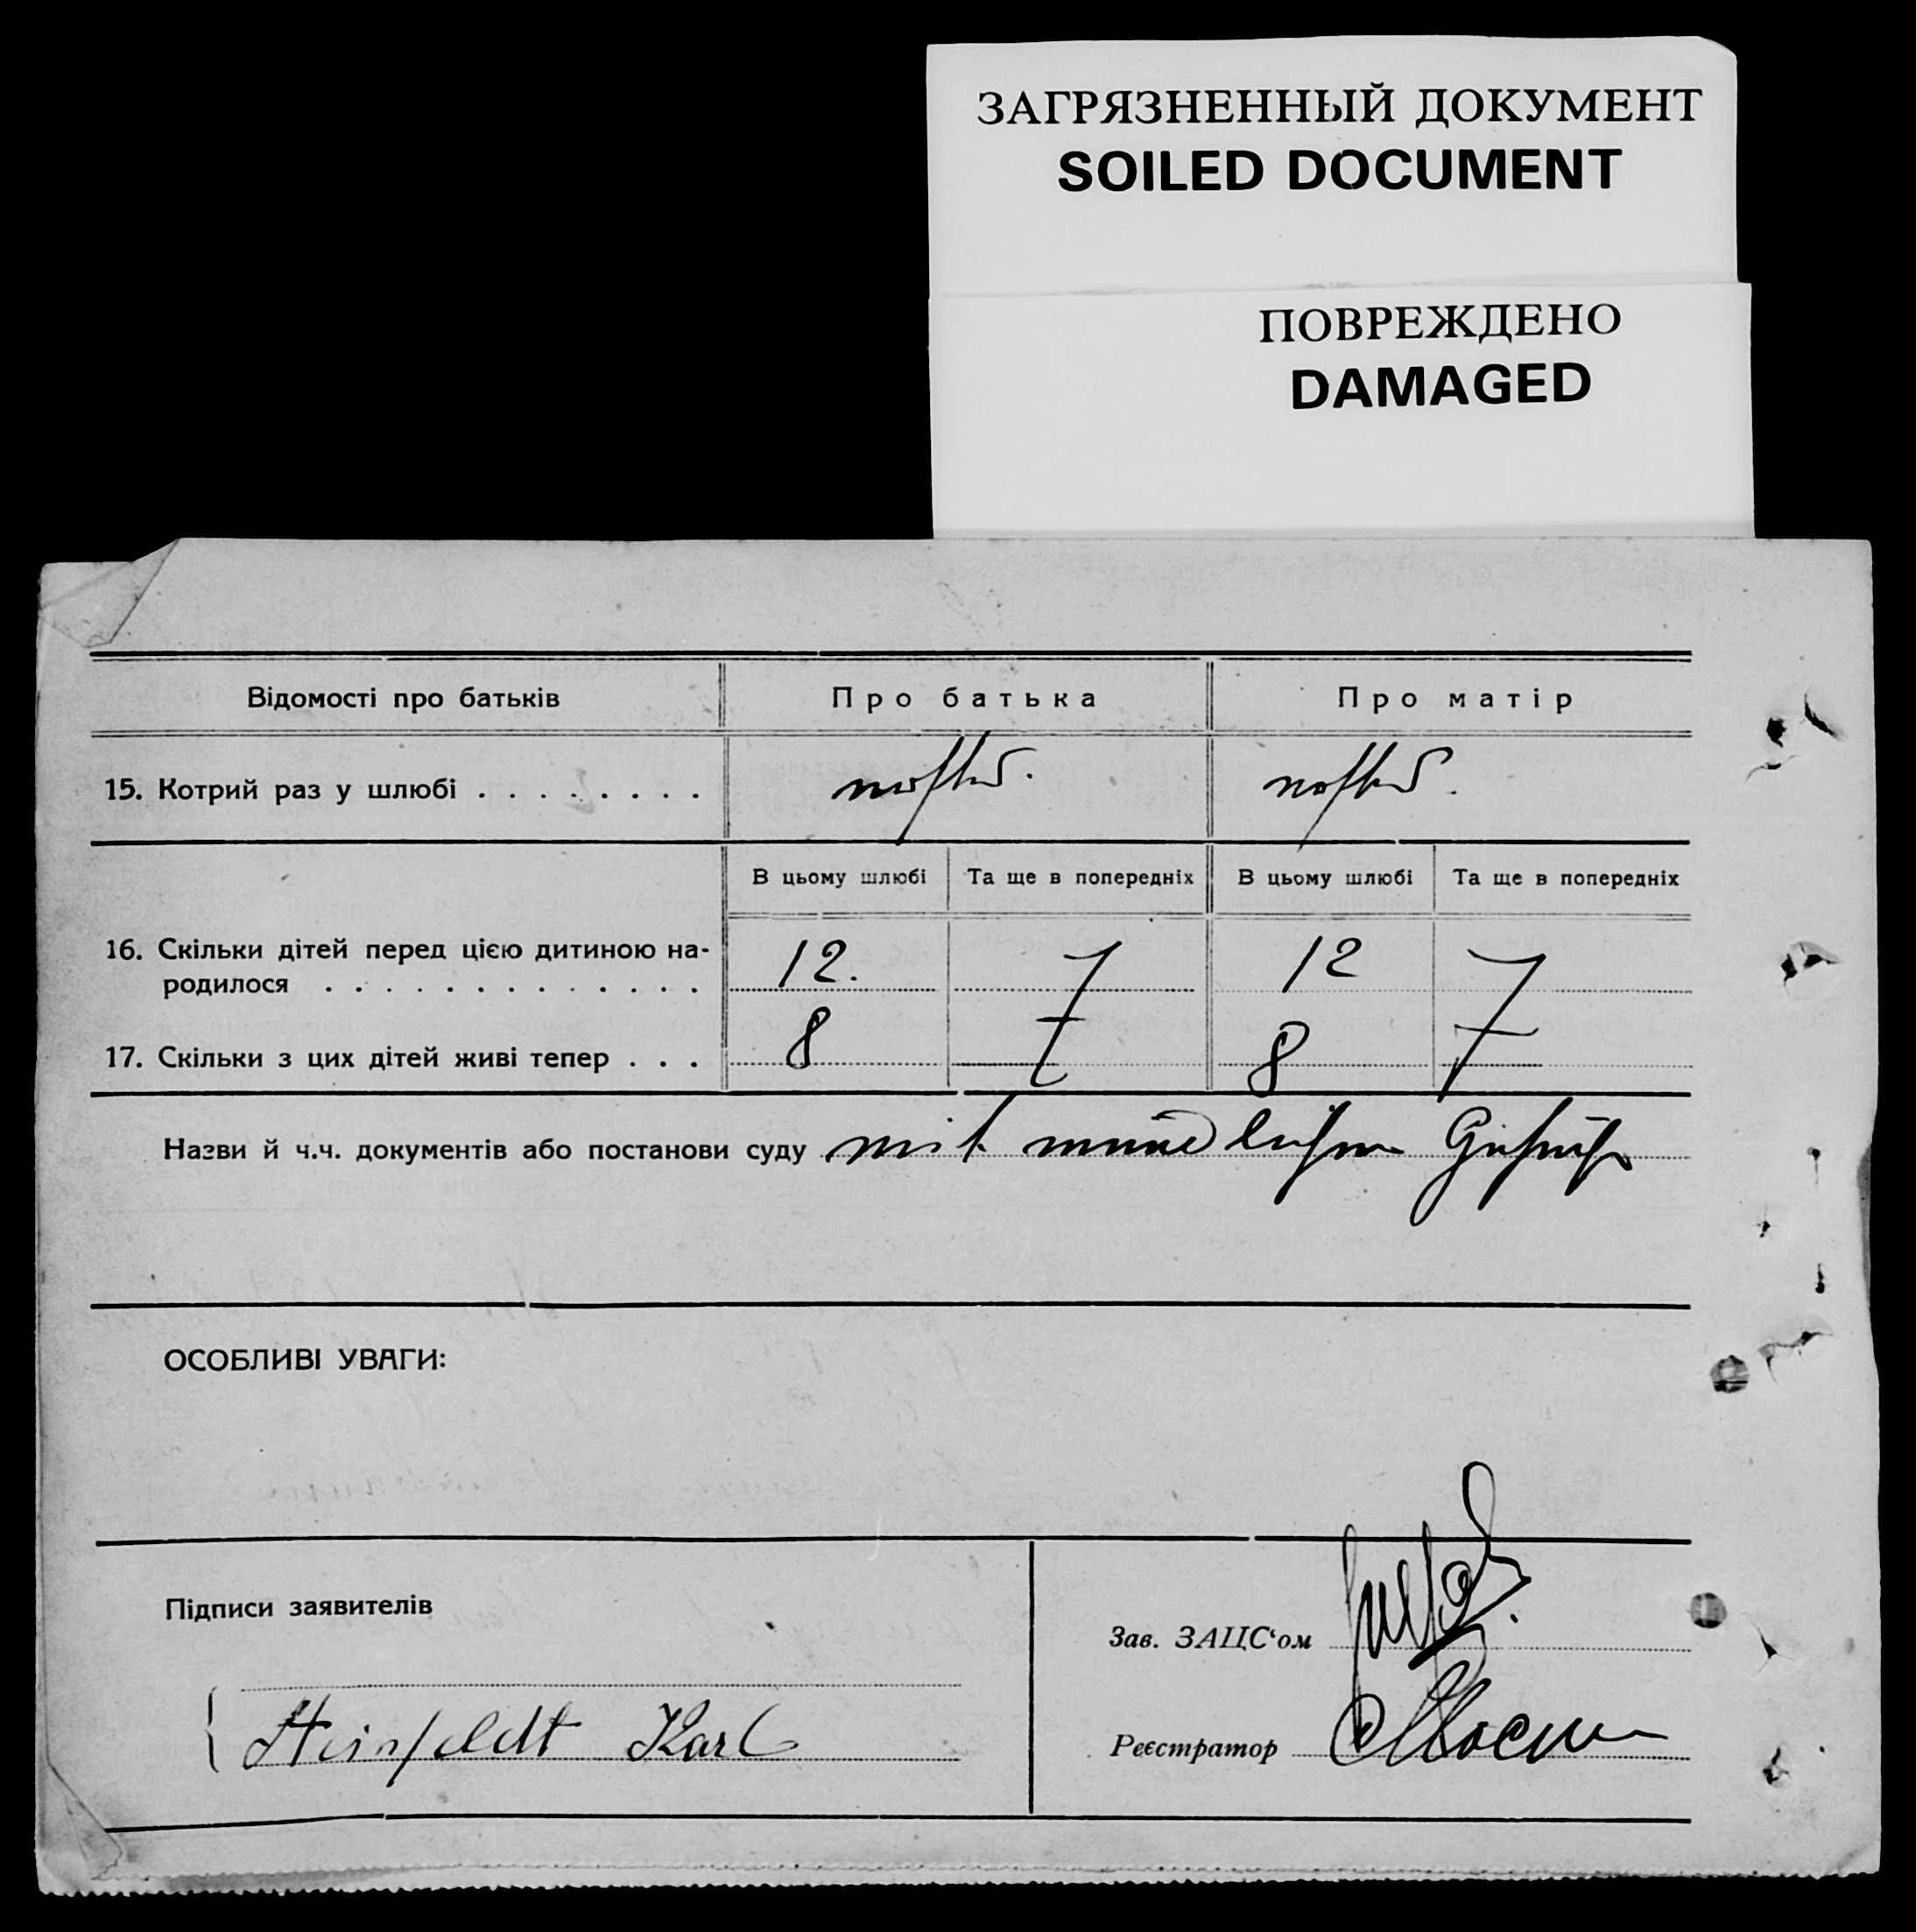 ЗАГРЯЗНЕННЫЙ ДОКУМЕНТ
SOILED DOCUMENT
ПОВРЕЖДЕНО
DAMAGED
Відомості про батьків Про батька Про матір
15. Котрий раз у шлюбі . . . . . . . .
В цьому шлюбі Та ще в попередніх В цьому шлюбі Та ще в попередніх
16. Скільки дітей перед цією дитиною на-
родилося . . . . . . . . . . . . . 12. 12
17. Скільки з цих дітей живі тепер . . . 8 8
Назви й ч.ч. документів або постанови суду mit
ОСОБЛИВІ УВАГИ:
Підписи заявителів
Зав. ЗАЦС‘ом
Karl
Реєстратор